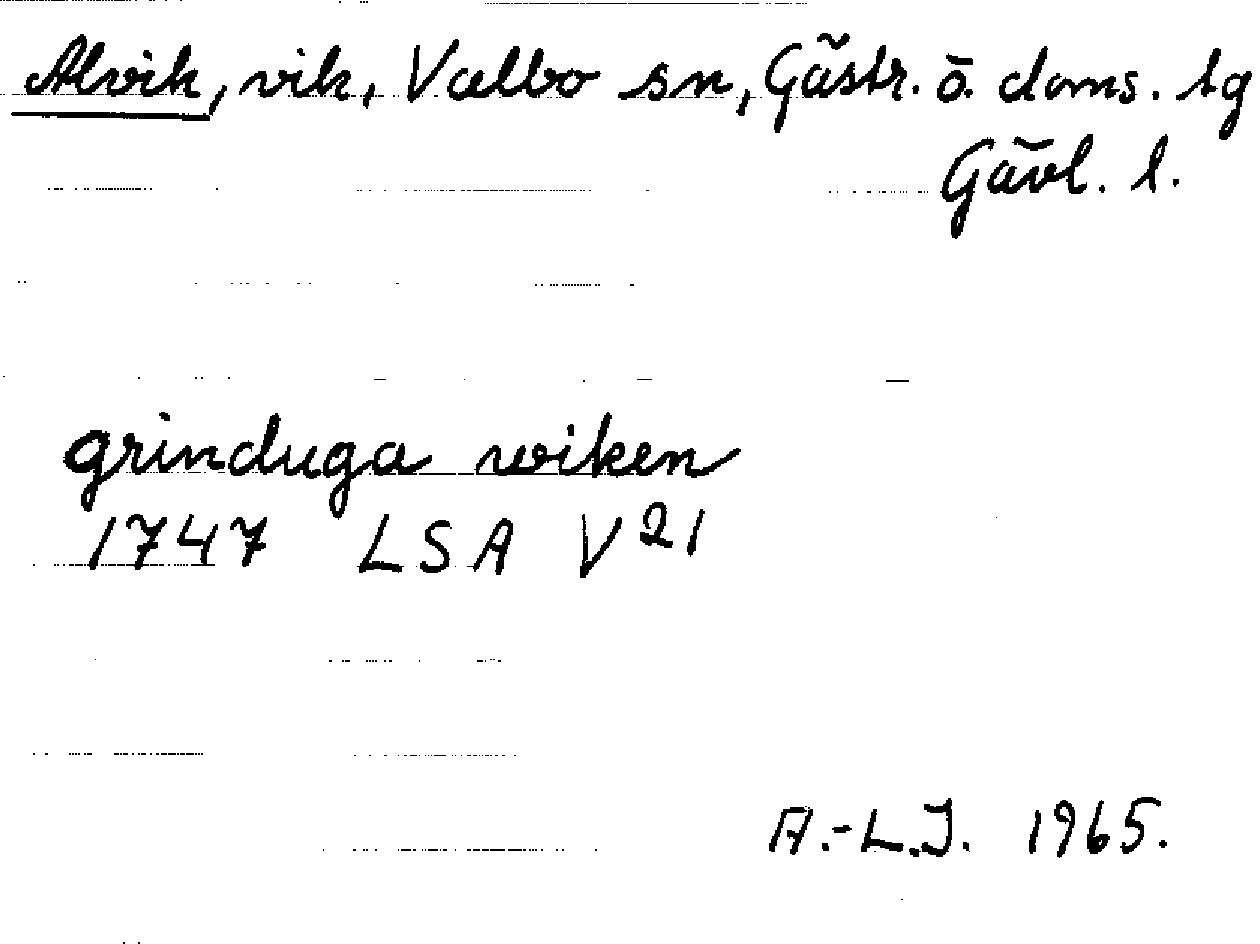 Alvik, vik, Valbo sn, Gästr. ö. doms. tg
Gävl. l.
grinduga wiken
1747 LSA V 21
A.-L.J. 1965.